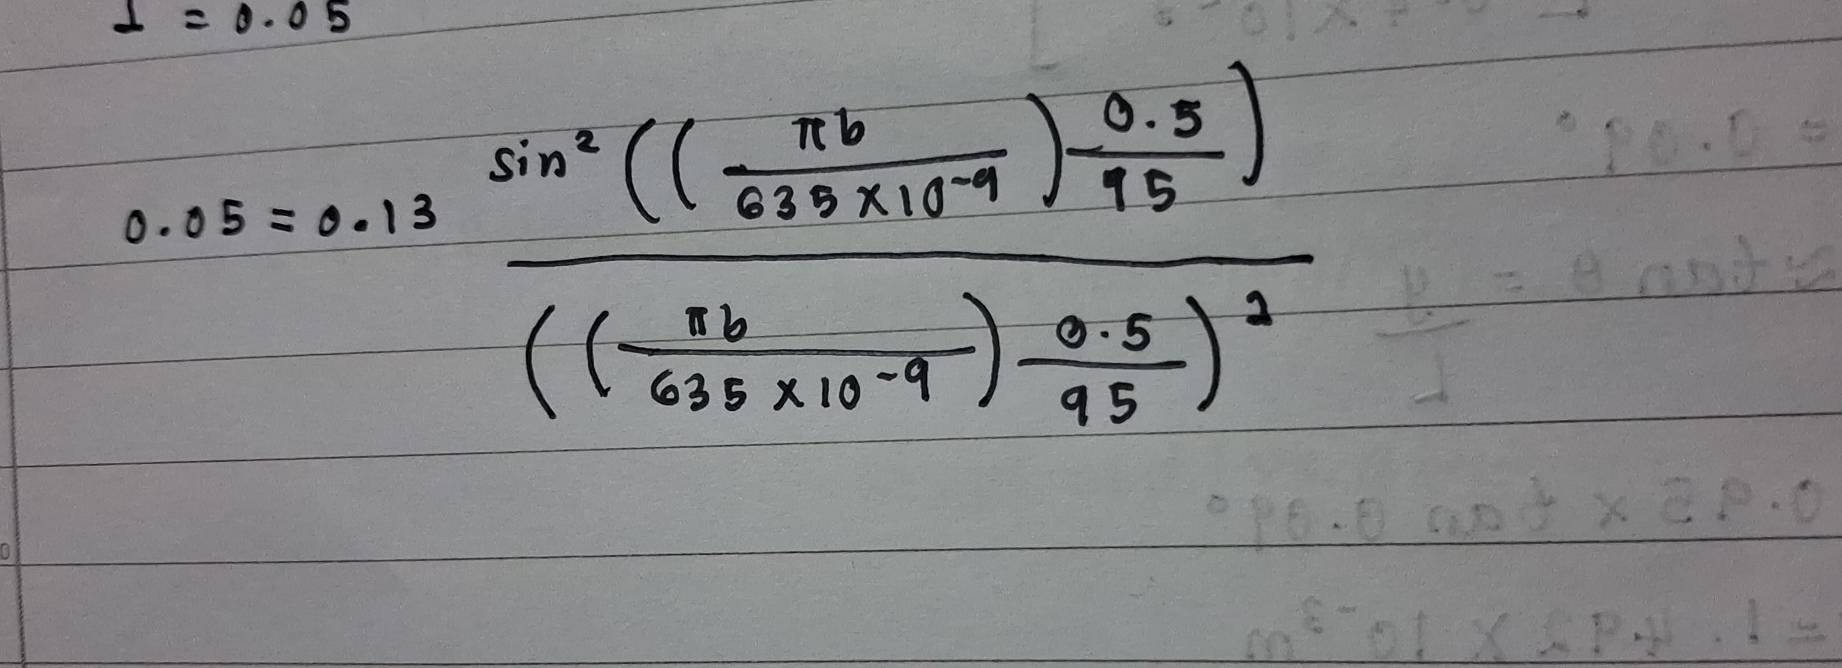 I = 0.05
0.05 = 0.13 sin² ((πb / 635 × 10⁻⁹) 0.5 / 95) / ((πb / 635 × 10⁻⁹) 0.5 / 95)²